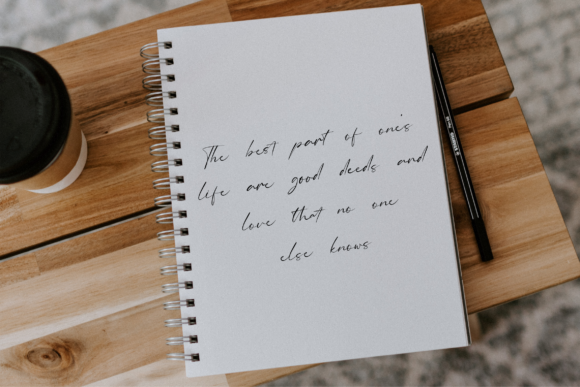 The best part of one's
life are good deeds and
love that no one
else knows